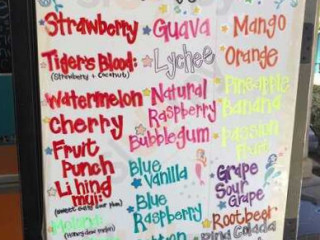 Strawberry
Tiger's Blood:
(Strawberry + Coconut)
Watermelon
Cherry
Fruit
Punch
Li hing
mui
Guava
Lychee
Natural
Raspberry
Bubblegum
Blue
Vanilla
Blue
Raspberry
Mango
Orange
Pineapple
Banana
Passion
Fruit
Grape
Sour
Grape
Rootbeer
Pina Colada